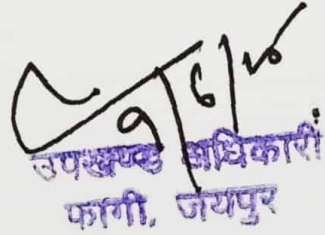 9/6/20
उपखण्ड अधिकारी
फागी, जयपुर